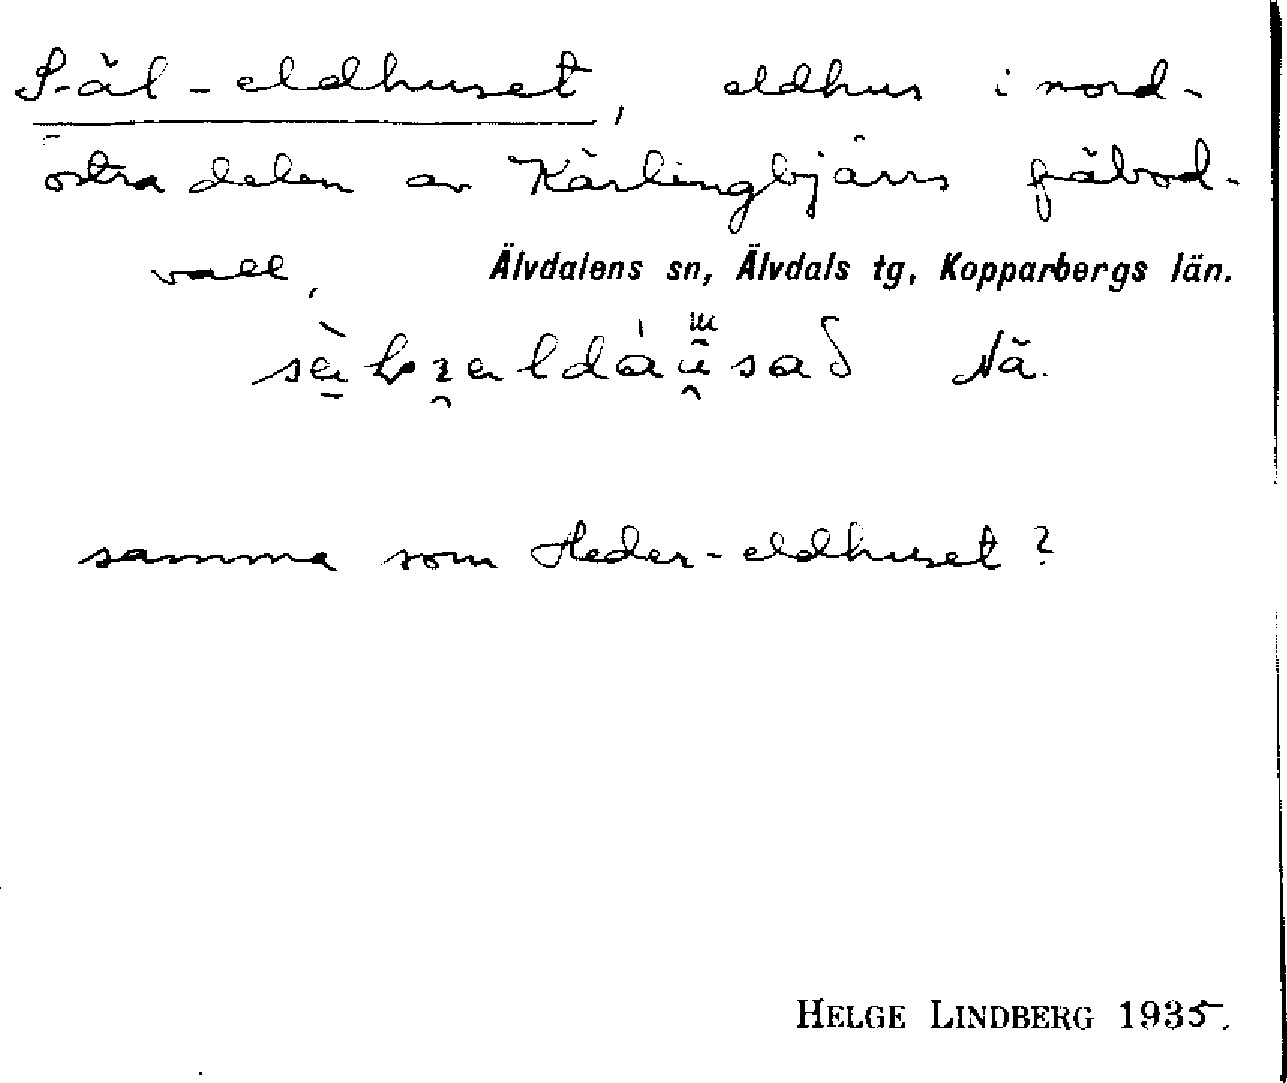 Säl-eldhuset, eldhus i nord-
östra delen av Kärlingbjärs fäbod-
vall, Älvdalens sn, Älvdals tg, Kopparbergs län.
Nä.
samma som Heden-eldhuset?
HELGE LINDBERG 1935.